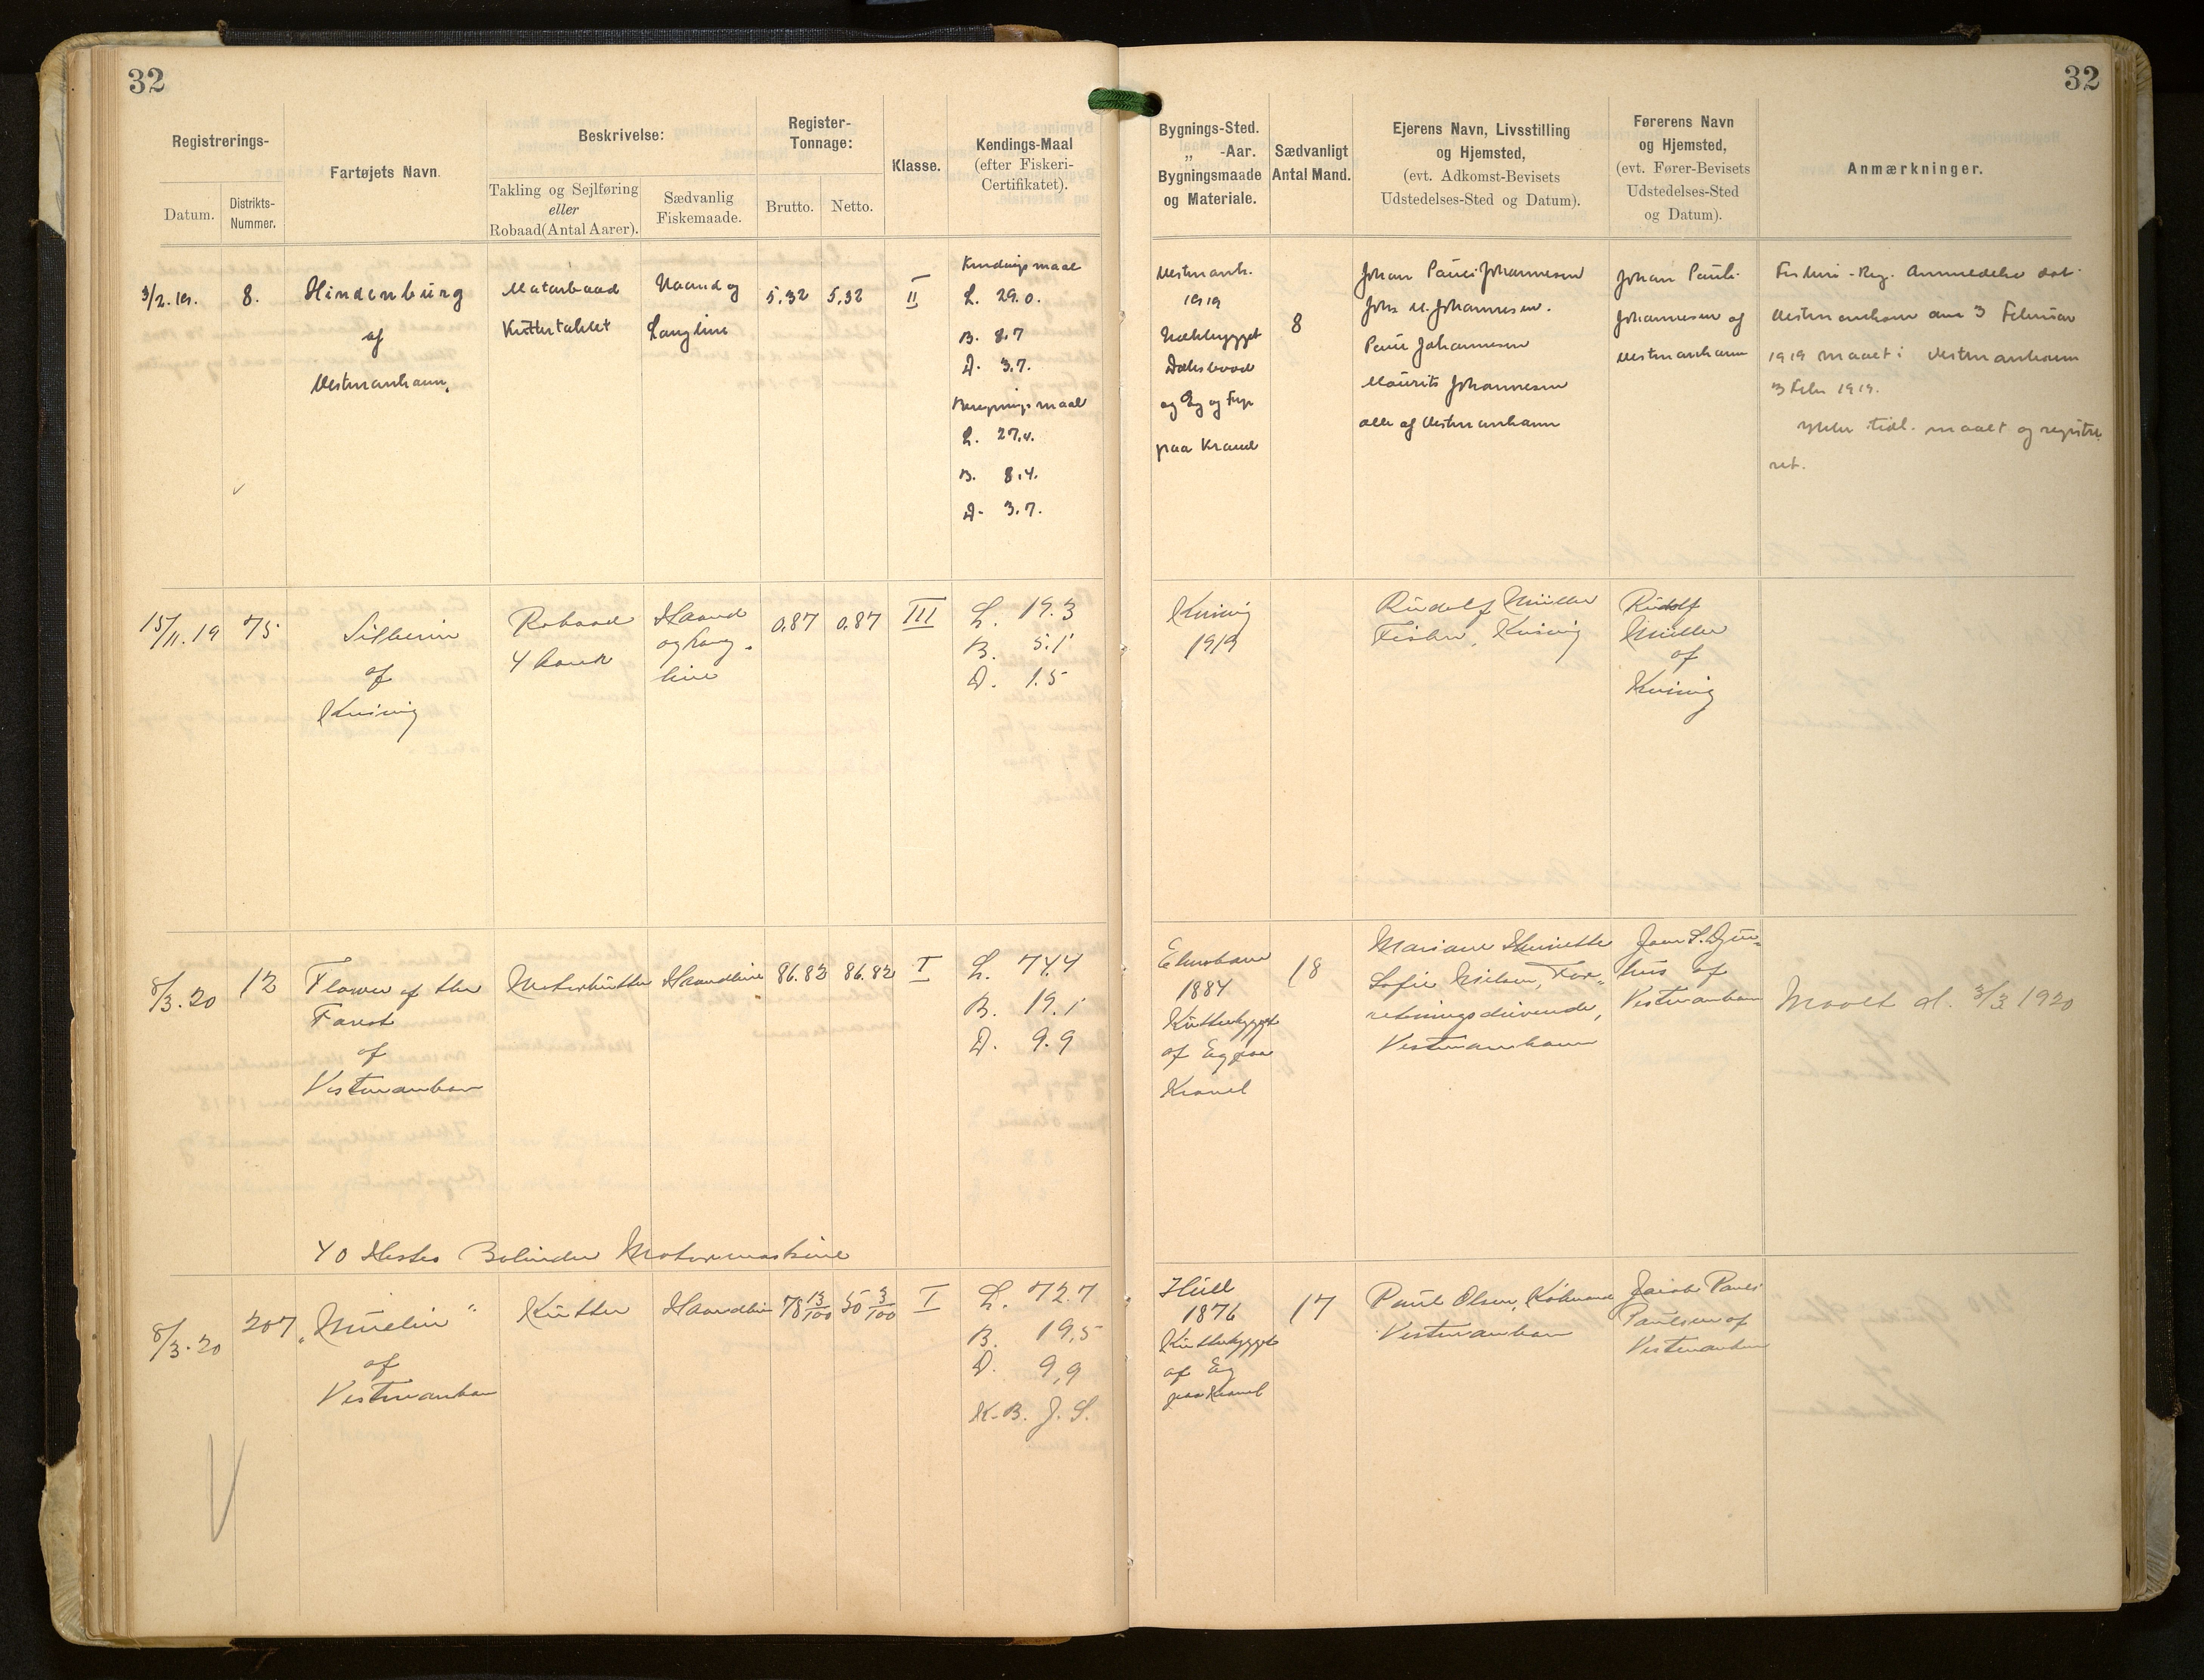 32
32
Registrerings-
Datum.
Distrikts-
Nummer.
Fartøjets Navn.
Beskrivelse:
Takling og Sejlføring
eller
Robaad (Antal Aarer).
Sædvanlig
Fiskemaade.
Register-
Tonnage:
Brutto.
Netto.
Klasse.
Kendings-Maal
(efter Fiskeri-
Certifikatet).
Bygnings-Sted.
„ -Aar.
Bygningsmaade
og Materiale.
Sædvanligt
Antal Mand.
Ejerens Navn, Livsstilling
og Hjemsted,
(evt. Adkomst-Bevisets
Udstedelses-Sted og Datum).
Førerens Navn
og Hjemsted,
(evt. Fører-Bevisets
Udstedelses-Sted
og Datum).
Anmærkninger.
3/2. 19.
8.
Hindenburg
af
Vestmanhavn.
Motorbaad
Kuttertaklet
Haand og
Langline
5,32
5,32
II
Kendingsmaal
L. 29.0.
B. 8.7
D. 3.7.
Beregningsmaal
L. 27.4.
B. 8.4.
D. 3.7.
Vestmanh.
1919
Dæksbaad
og Eg og Fyr
paa Kravel
8
Johan Pauli Johannesen
Johs M. Johannesen.
Pauli Johannesen
Mourits Johannesen
alle af Vestmanhavn
Johan Pauli
Johannesen af
Vestmanhavn
Fiskeri-Reg. Anmeldelse dat.
Vestmanhavn den 3 Februar
1919 maalt i Vestmanhavn
3 Febr 1919.
tidl. maalt og registre
ret.
15/11. 19
75
af
Kvivig
Robaad
4 Aarer
Haand
og Lang.
line
0.87
0.87
III
L. 19.3
B. 5.1
D. 1.5
Kvivig
1919
Rudolf Müller
Fisker, Kvivig
Rudolf
Müller
af
Kvivig
8/3. 20
12
Flower of the
Forest
af
Vestmanhavn
Motorkutter
Haandline
86.82
86.82
I
L. 74.4
B. 19.1
D. 9.9
1884
Kutterbygget
af Eg paa
Kravel
18
Mariane Henriette
Sofie Nielsen, For-
retningsdrivende,
Vestmanhavn
Joen S. Djur-
hus af
Vestmanhavn
Maalt d. 3/3 1920
40 Hestes Bolinder Motormaskine
8/3. 20
207
af
Vestmanhavn
Kutter
Haandline
78 13/100
50 3/100
I
L. 72.7
B. 19,5
D. 9,9
K.B. J.S.
Hull
1876
Kutterbygget
af Eg
paa Kravel
17
Paul Olsen, Købmand
Vestmanhavn
Jacob Pauli
Paulsen af
Vestmanhavn